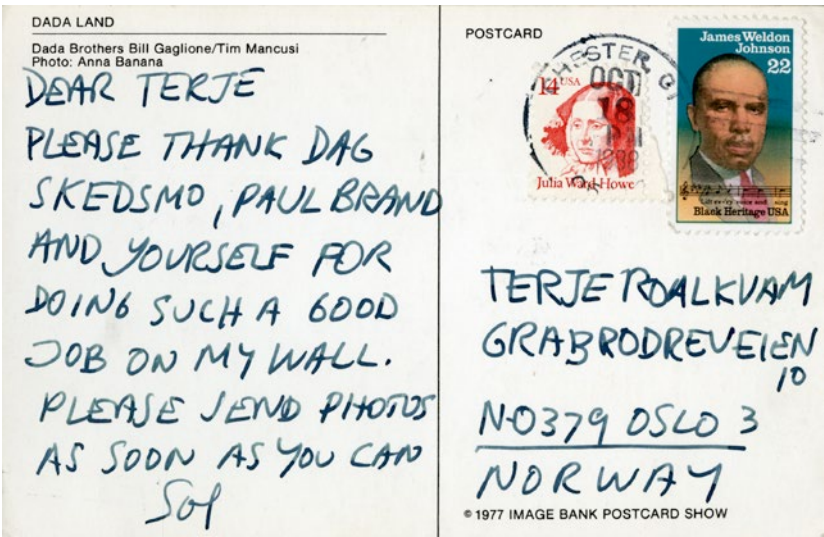 DADA LAND
Dada Brothers Bill Gaglione/Tim Mancusi
Photo: Anna Banana
DEAR TERJE
PLEASE THANK DAG
SKEDSMO, PAUL BRAND
AND YOURSELF FOR
DOING SUCH A GOOD
JOB ON MY WALL.
PLEASE SEND PHOTOS
AS SOON AS YOU CAN
Sol
POSTCARD
CHESTER, C
OCT
18
PM
14 USA
Julia Ward Howe
James Weldon
Johnson
22
Lift ev'ry voice and sing
Black Heritage USA
TERJE ROALKVAM
GRABRODREVEIEN
10
N-0379 OSLO 3
NORWAY
© 1977 IMAGE BANK POSTCARD SHOW